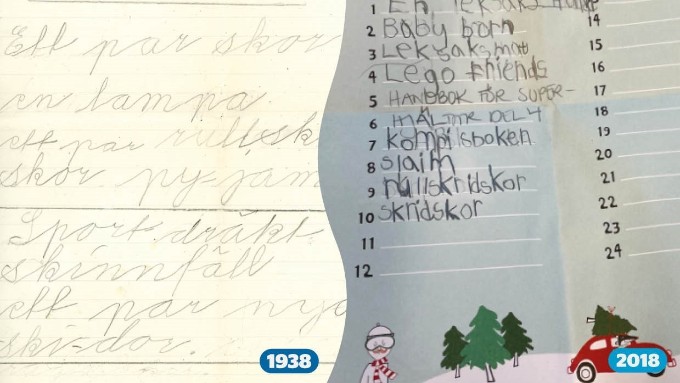 Ett par skor
en lampa.
ett par rullsk
skor. py-jam
Sport.dräkt.
skinnfäll
ett par nya
ski-dor.
1938
1 En leksaks
2 Baby born
3 Leksaksmat
4 Lego friends
5 HANDBOK FÖR SUPER-
6 HJÄLTAR DEL 4
7 kompisboken
8 slaim
9 rullskridskor
10 skridskor
11
12
14
15
16
17
18
19
20
21
22
23
24
2018